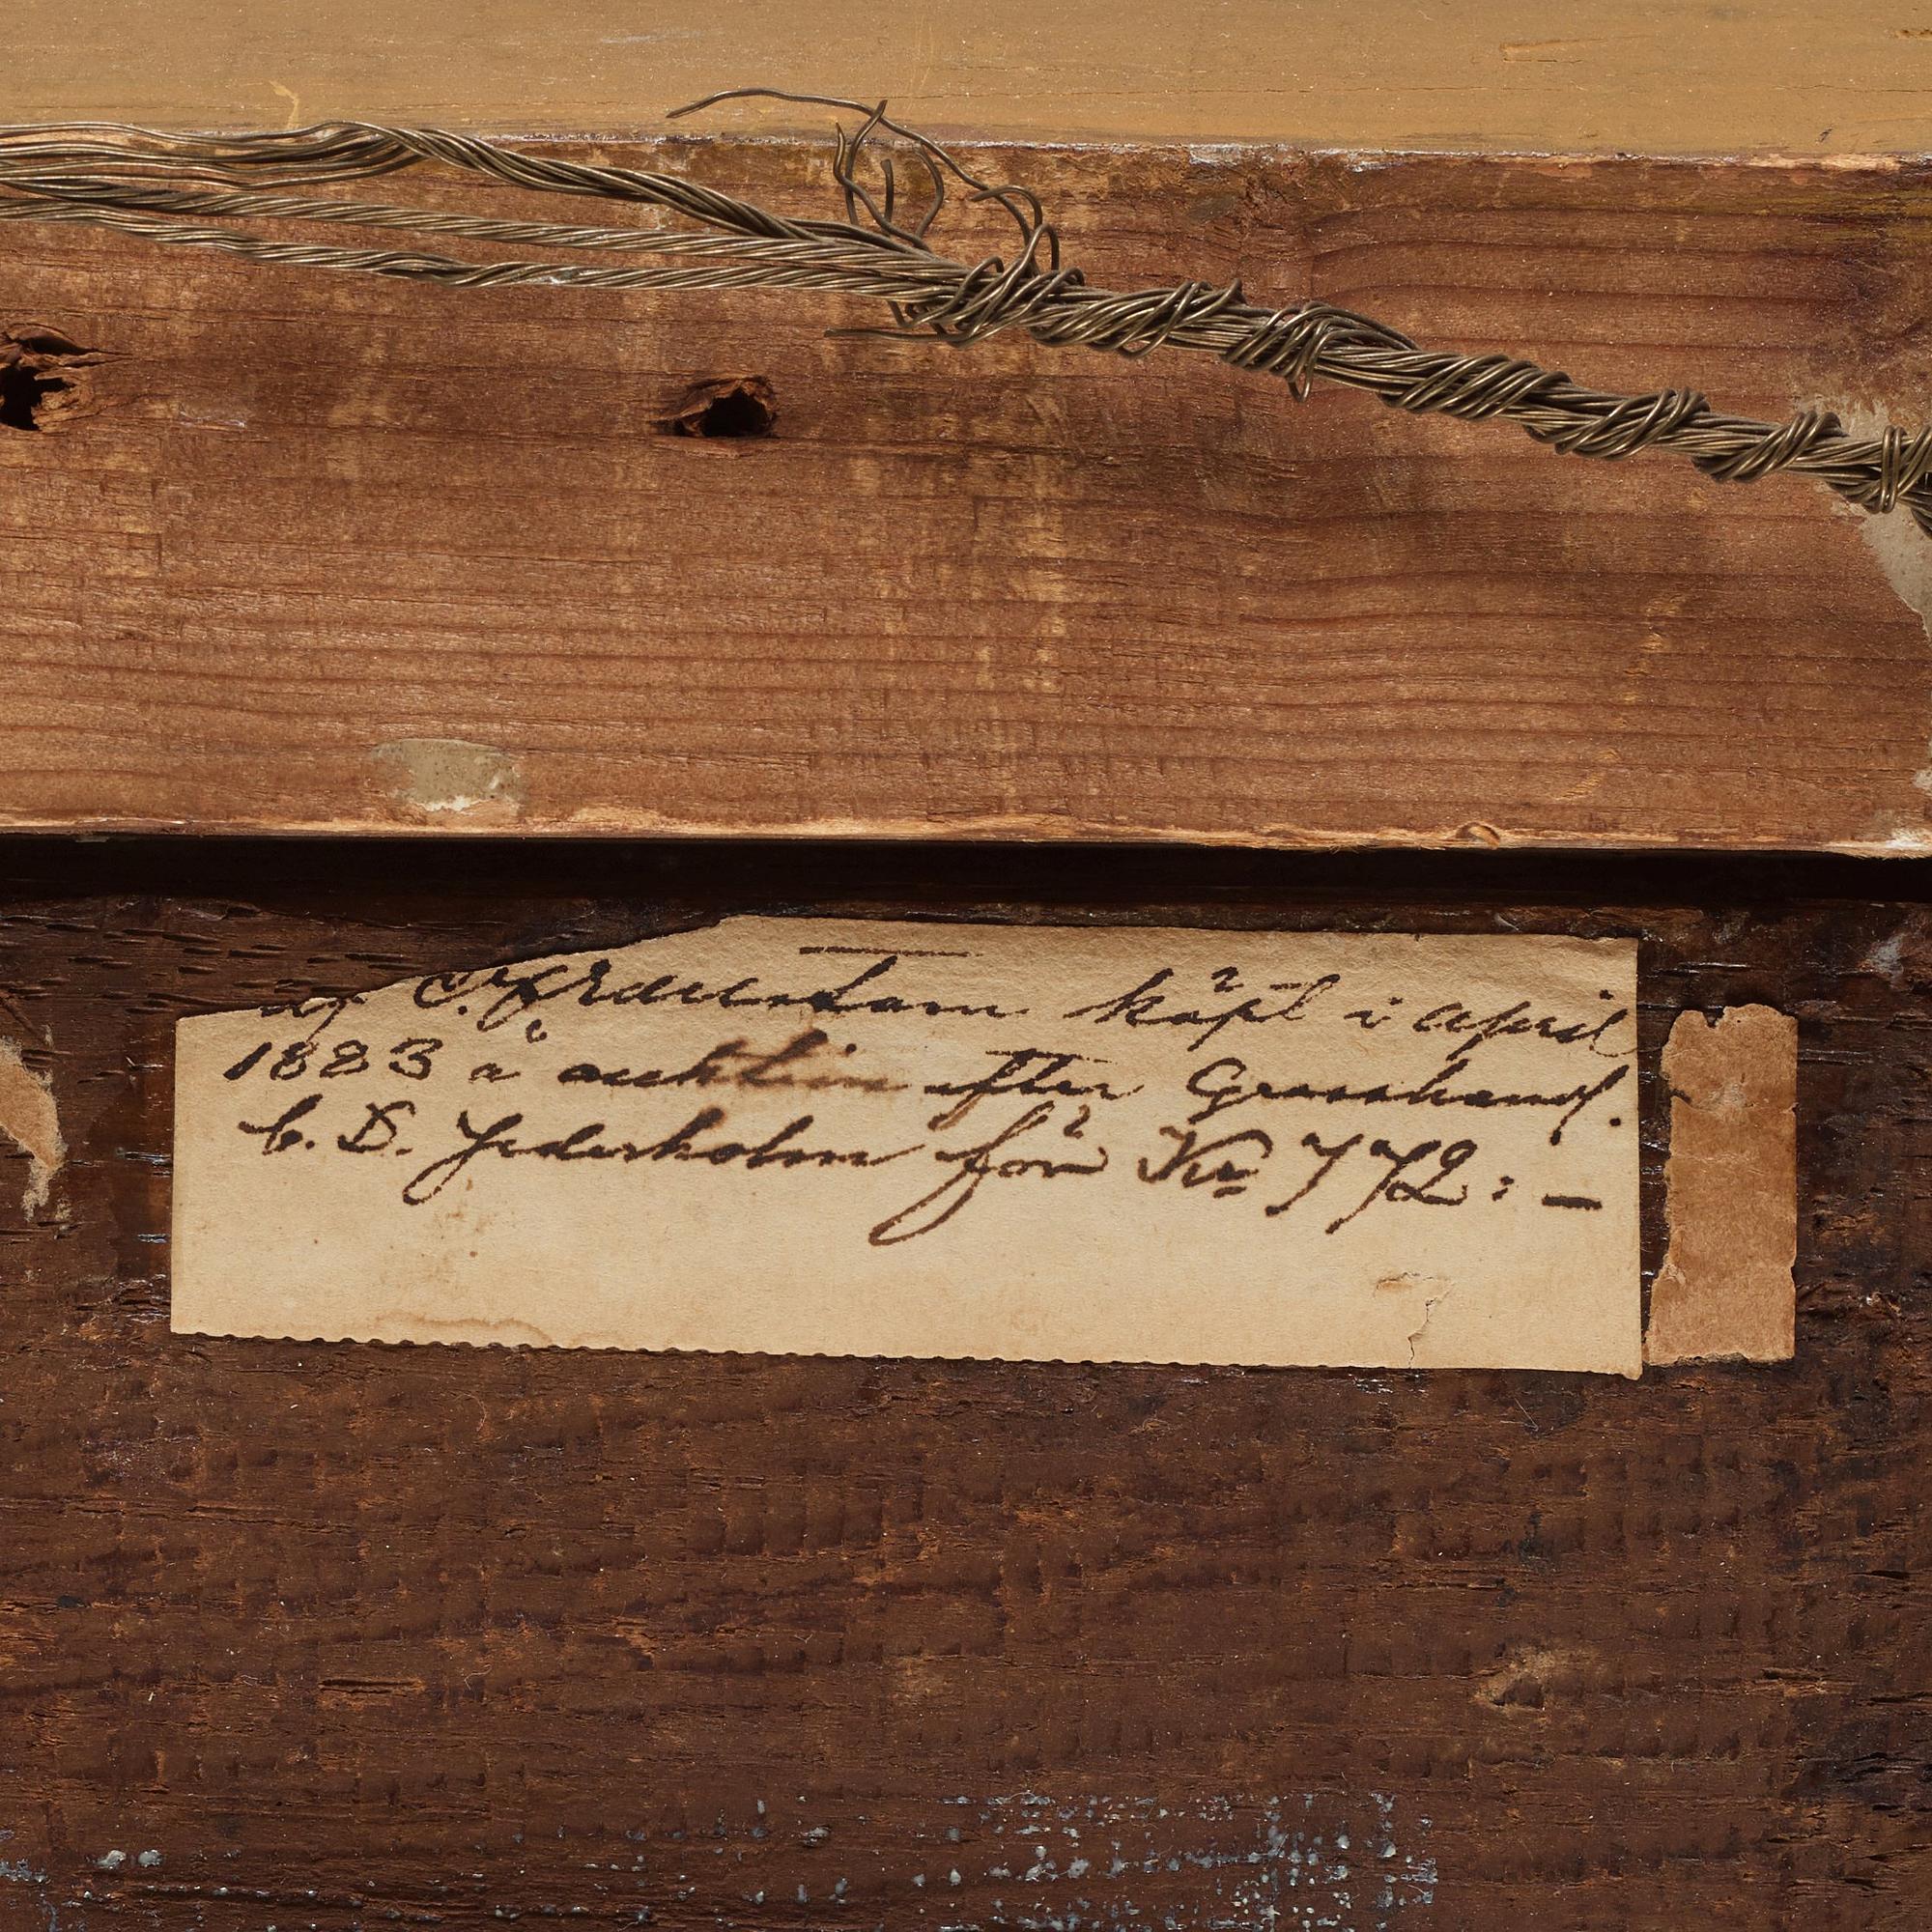 av C. Fr. köpt i april
1883 å auktion efter Grosshand.
C. D. Sederholm för Kr 772: —